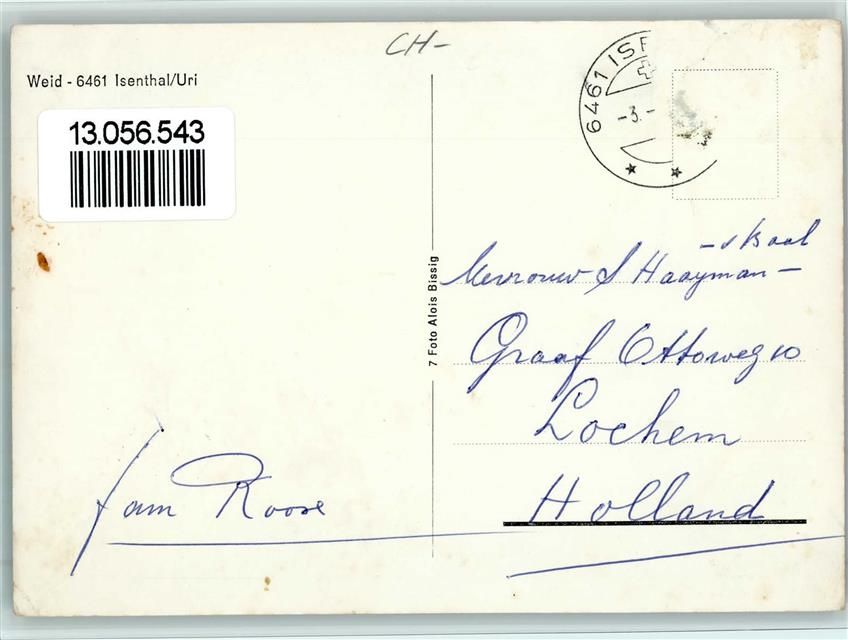 CH-
Weid - 6461 Isenthal/Uri
13.056.543
6461 ISE
-3.-
7 Foto Alois Bissig
Mevrouw S Haayman -
Graaf Ottoweg 10
Lochem
Holland
fam Roose